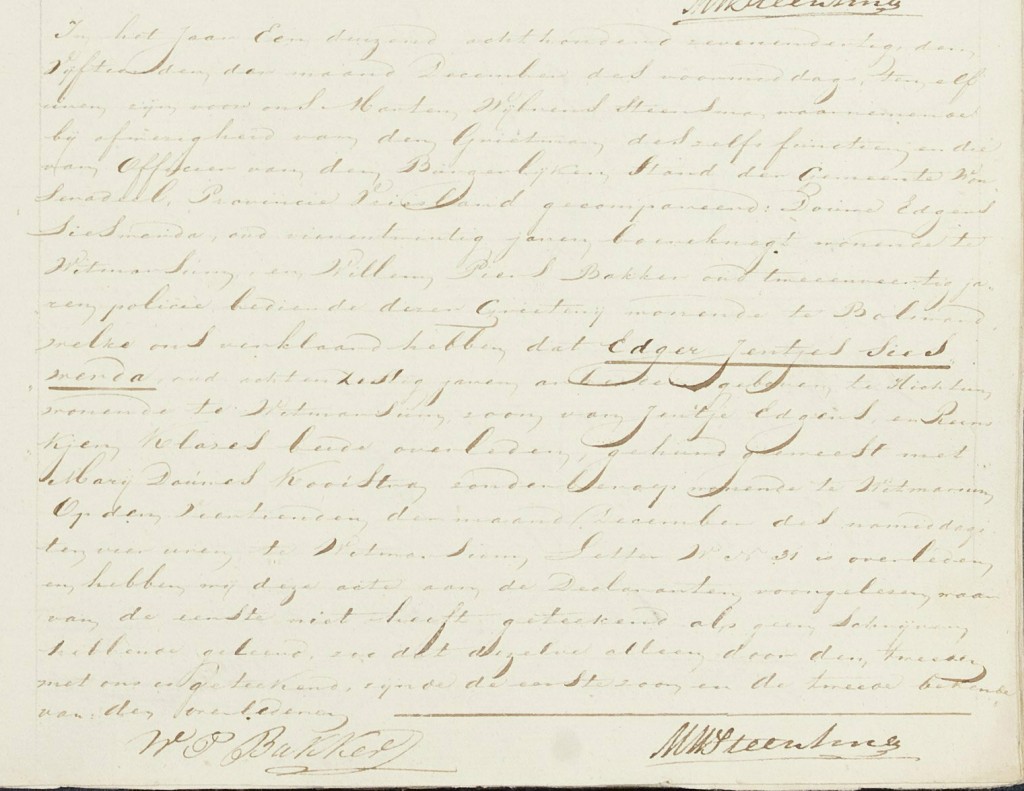 MWSteensma
In het Jaar Een duizend achthonderd zevenendertig, den
Vijftienden der maand December des voormiddags, ten elf
uren, zijn voor ons Marten Wybrens Steensma, waarnemende
bij afwezigheid van den Grietman deszelfs functien en die
van Officier van den Burgerlijken Stand der Gemeente Won
seradeel, Provincie Vriesland gecompareerd: Douwe Edgers
Siesmanda, oud vierentwintig jaren, boereknegt wonende te
Witmarsum, en Willem Piers Bakker oud tweeenveertig ja-
ren, policie bediende dezer Grietenij wonende te Bolsward,
welke ons verklaard hebben, dat Edger Jentjes Sies
werda, oud achtenzestig jaren, arbeider geboren te Hichtum,
wonende te Witmarsum, zoon van Jentje Edgers, en Rein
kjen Klases beide overleden, gehuwd geweest met
Marij Douwes Kooistra, zonder beroep wonende te Witmarsum,
Op den Veertienden der maand December des namiddags
ten vier uren, te Witmarsum, Letter W N 31 is overleden,
en hebben wij deze acte aan de Declaranten voorgelezen, waar
van de eerste niet heeft geteekend als geen schrijven
hebbende geleerd, zoo dat dezelve alleen door den tweeden
met ons is geteekend, zijnde de eerste zoon en de tweede bekende
van den overledenen
W P Bakker MWSteensma